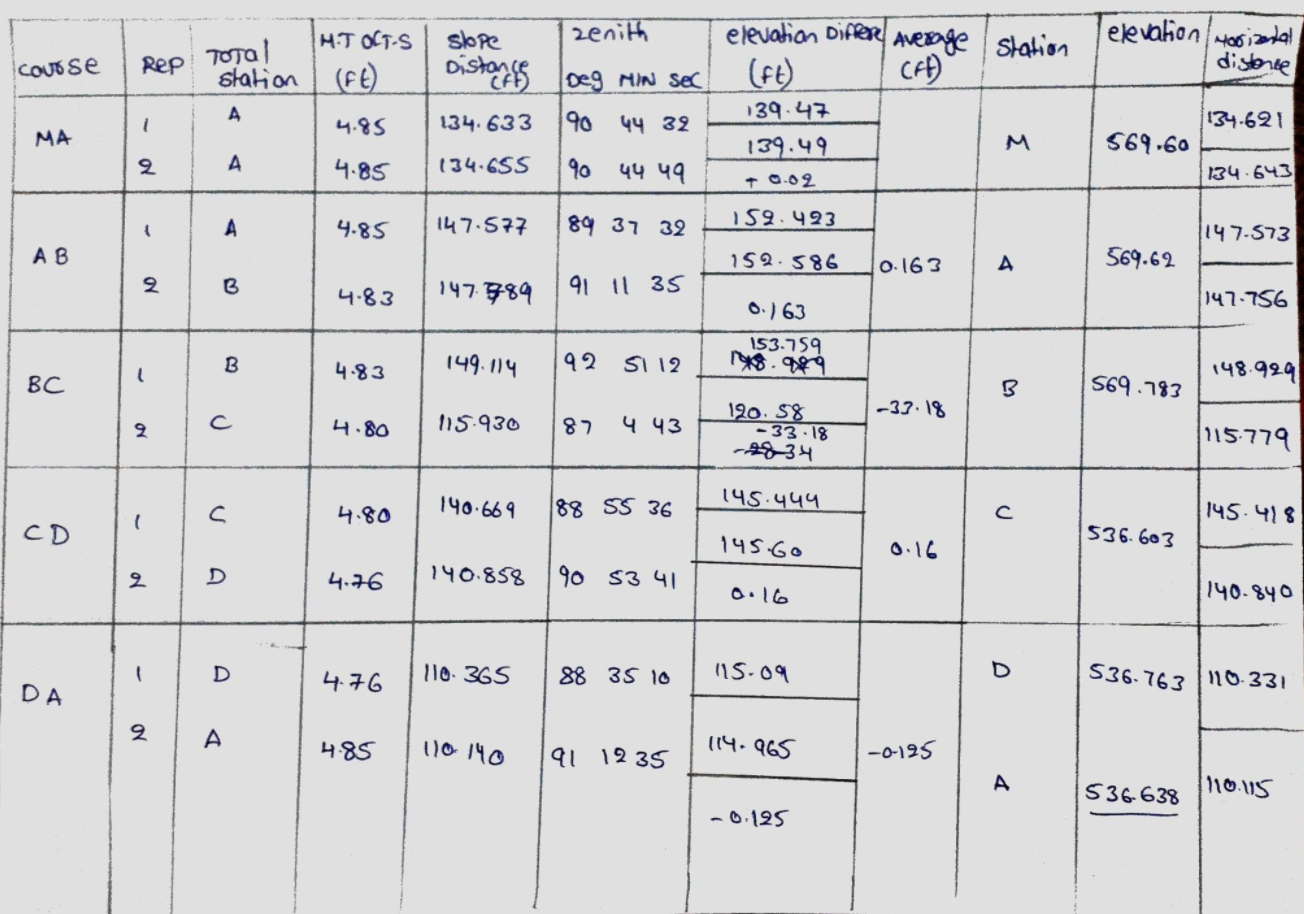 course REP Total station H.T OF T.S (ft) Slope Distance (ft) zenith Deg MIN Sec elevation Differe (ft) Average (ft) Station elevation Horizontal distance
MA 1 A 4.85 134.633 90 44 32 139.47 M 569.60 134.621
2 A 4.85 134.655 90 44 49 139.49 134.643
+ 0.02
AB 1 A 4.85 147.577 89 37 32 152.423 0.163 A 569.62 147.573
2 B 4.83 147.789 91 11 35 152.586 147.756
0.163
BC 1 B 4.83 149.114 92 51 12 153.759 -33.18 B 569.783 148.929
2 C 4.80 115.930 87 4 43 120.58 115.779
-33.18
-28.34
CD 1 C 4.80 140.669 88 55 36 145.444 0.16 C 536.603 145.418
2 D 4.76 140.858 90 53 41 145.60 140.840
0.16
DA 1 D 4.76 110.365 88 35 10 115.09 D 536.763 110.331
2 A 4.85 110.140 91 12 35 114.965 -0.125 A 536.638 110.115
-0.125